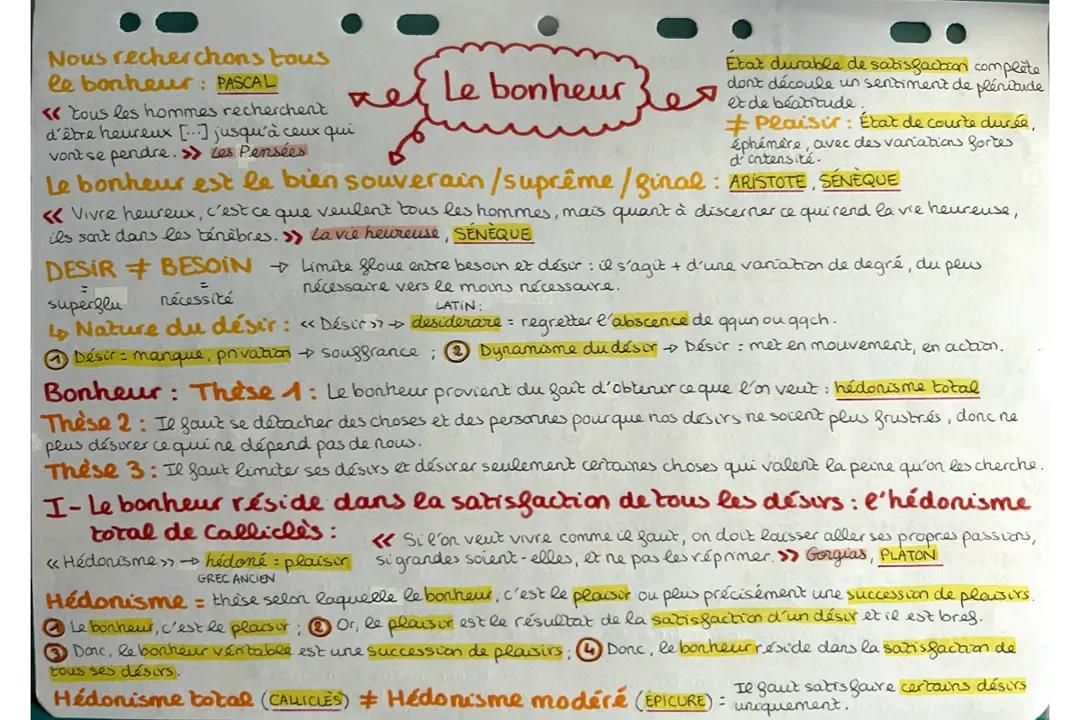 Le bonheur
Nous recherchons tous
le bonheur : PASCAL
« tous les hommes recherchent
d'être heureux [...] jusqu'à ceux qui
vont se pendre. » Les Pensées
État durable de satisfaction complète
dont découle un sentiment de plénitude
et de béatitude.
≠ Plaisir : État de courte durée,
éphémère, avec des variations fortes
d'intensité.
Le bonheur est le bien souverain / suprême / final : ARISTOTE, SÉNÈQUE
« Vivre heureux, c'est ce que veulent tous les hommes, mais quant à discerner ce qui rend la vie heureuse,
ils sont dans les ténèbres. » La vie heureuse, SÉNÈQUE
DESIR ≠ BESOIN → Limite floue entre besoin et désir : il s'agit + d'une variation de degré, du plus
= superflu = nécessité nécessaire vers le moins nécessaire.
LATIN :
↳ Nature du désir : « Désir » → desiderare = regretter l'abscence de qqun ou qqch.
① Désir = manque, privation → souffrance ; ② Dynamisme du désir → Désir : met en mouvement, en action.
Bonheur : Thèse 1 : Le bonheur provient du fait d'obtenir ce que l'on veut : hédonisme total
Thèse 2 : Il faut se détacher des choses et des personnes pour que nos désirs ne soient plus frustrés, donc ne
plus désirer ce qui ne dépend pas de nous.
Thèse 3 : Il faut limiter ses désirs et désirer seulement certaines choses qui valent la peine qu'on les cherche.
I- Le bonheur réside dans la satisfaction de tous les désirs : l'hédonisme
total de Calliclès :
« Si l'on veut vivre comme il faut, on doit laisser aller ses propres passions,
si grandes soient-elles, et ne pas les réprimer. » Gorgias, PLATON
« Hédonisme » → hédoné : plaisir
GREC ANCIEN
Hédonisme = thèse selon laquelle le bonheur, c'est le plaisir ou plus précisément une succession de plaisirs.
① Le bonheur, c'est le plaisir ; ② Or, le plaisir est le résultat de la satisfaction d'un désir et il est bref.
③ Donc, le bonheur véritable est une succession de plaisirs ; ④ Donc, le bonheur réside dans la satisfaction de
tous ses désirs.
Hédonisme total (CALLICLÈS) ≠ Hédonisme modéré (ÉPICURE) = Il faut satisfaire certains désirs
uniquement.